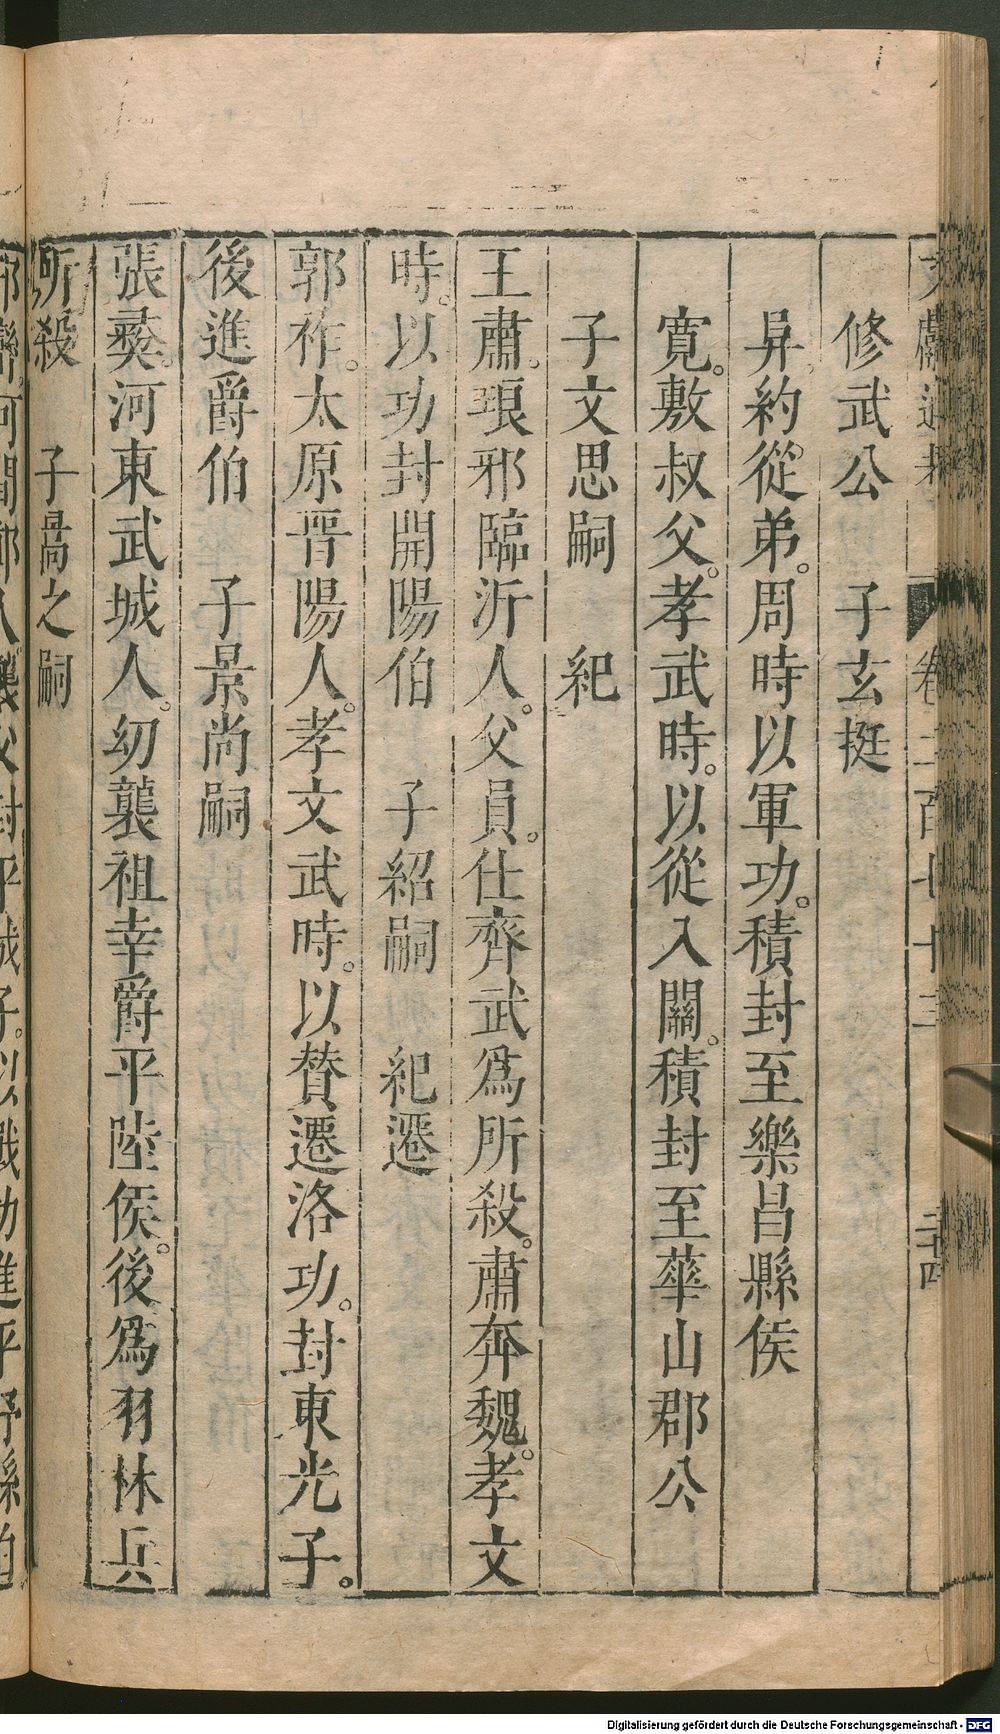 文獻通考 卷二百七十三 二十四
修武公 子玄挺
昇約從弟。周時以軍功。積封至樂昌縣侯
寬。敷叔父。孝武時。以從入關。積封至華山郡公
子文思嗣 紀
王肅。琅邪臨沂人。父員。仕齊武爲所殺。肅奔魏。孝文
時。以功封開陽伯 子紹嗣 紀遷
郭祚。太原晉陽人。孝文武時。以贊遷洛功。封東光子。
後進爵伯 子景尚嗣
張彝。河東武城人。幼襲祖幸爵平陸侯。後爲羽林兵
所殺 子暠之嗣
Digitalisierung gefördert durch die Deutsche Forschungsgemeinschaft - DFG